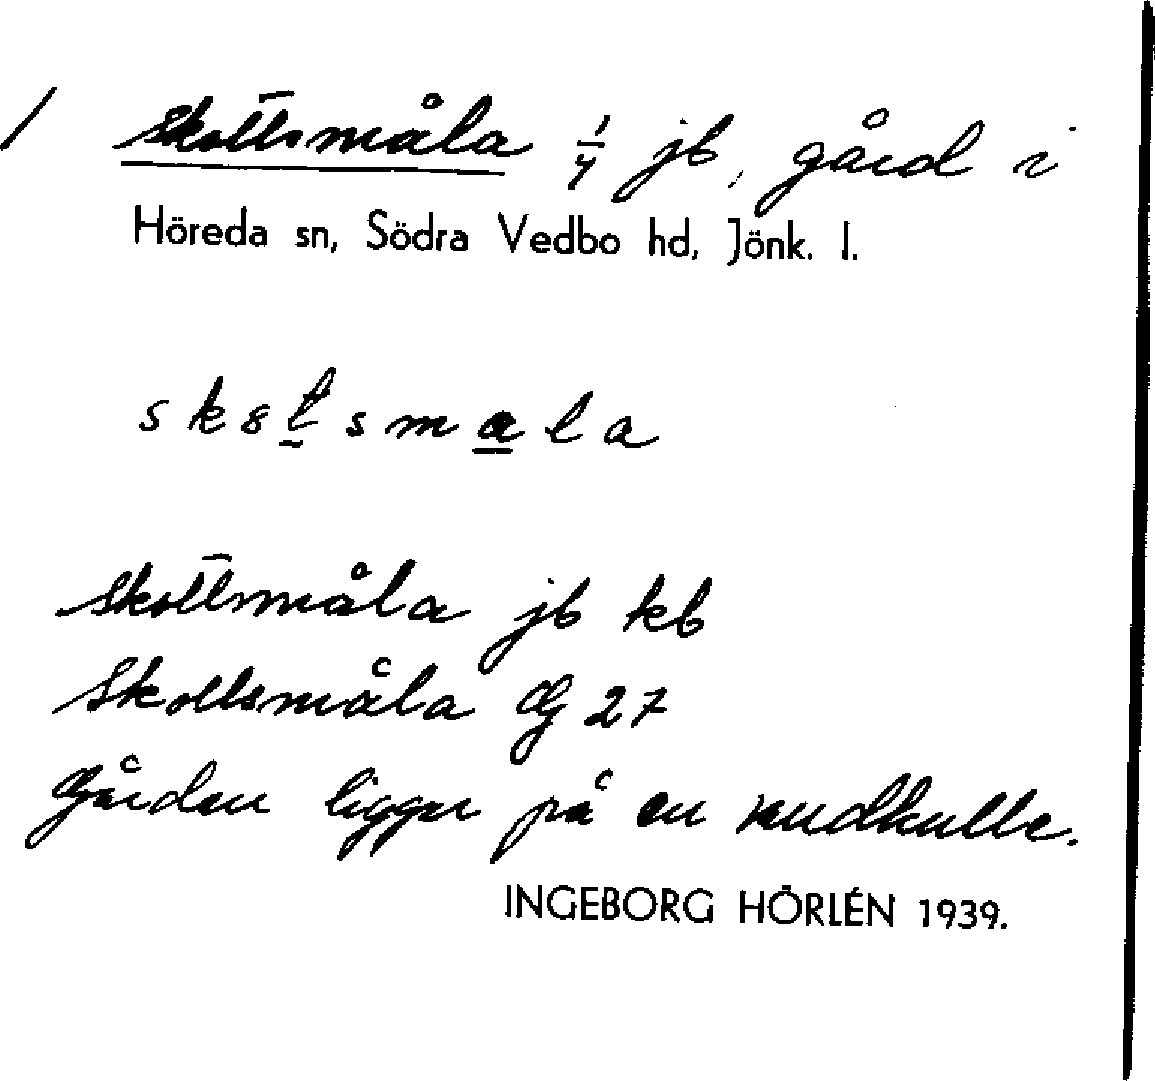 / Skottsmåla 1/4 jb, gård i
Höreda sn, Södra Vedbo hd, Jönk. l.
sk8tsmala
Skottsmåla jb kb
Skollsmåla G 27
Gården ligger på en rundkulle.
INGEBORG HÖRLÉN 1939.